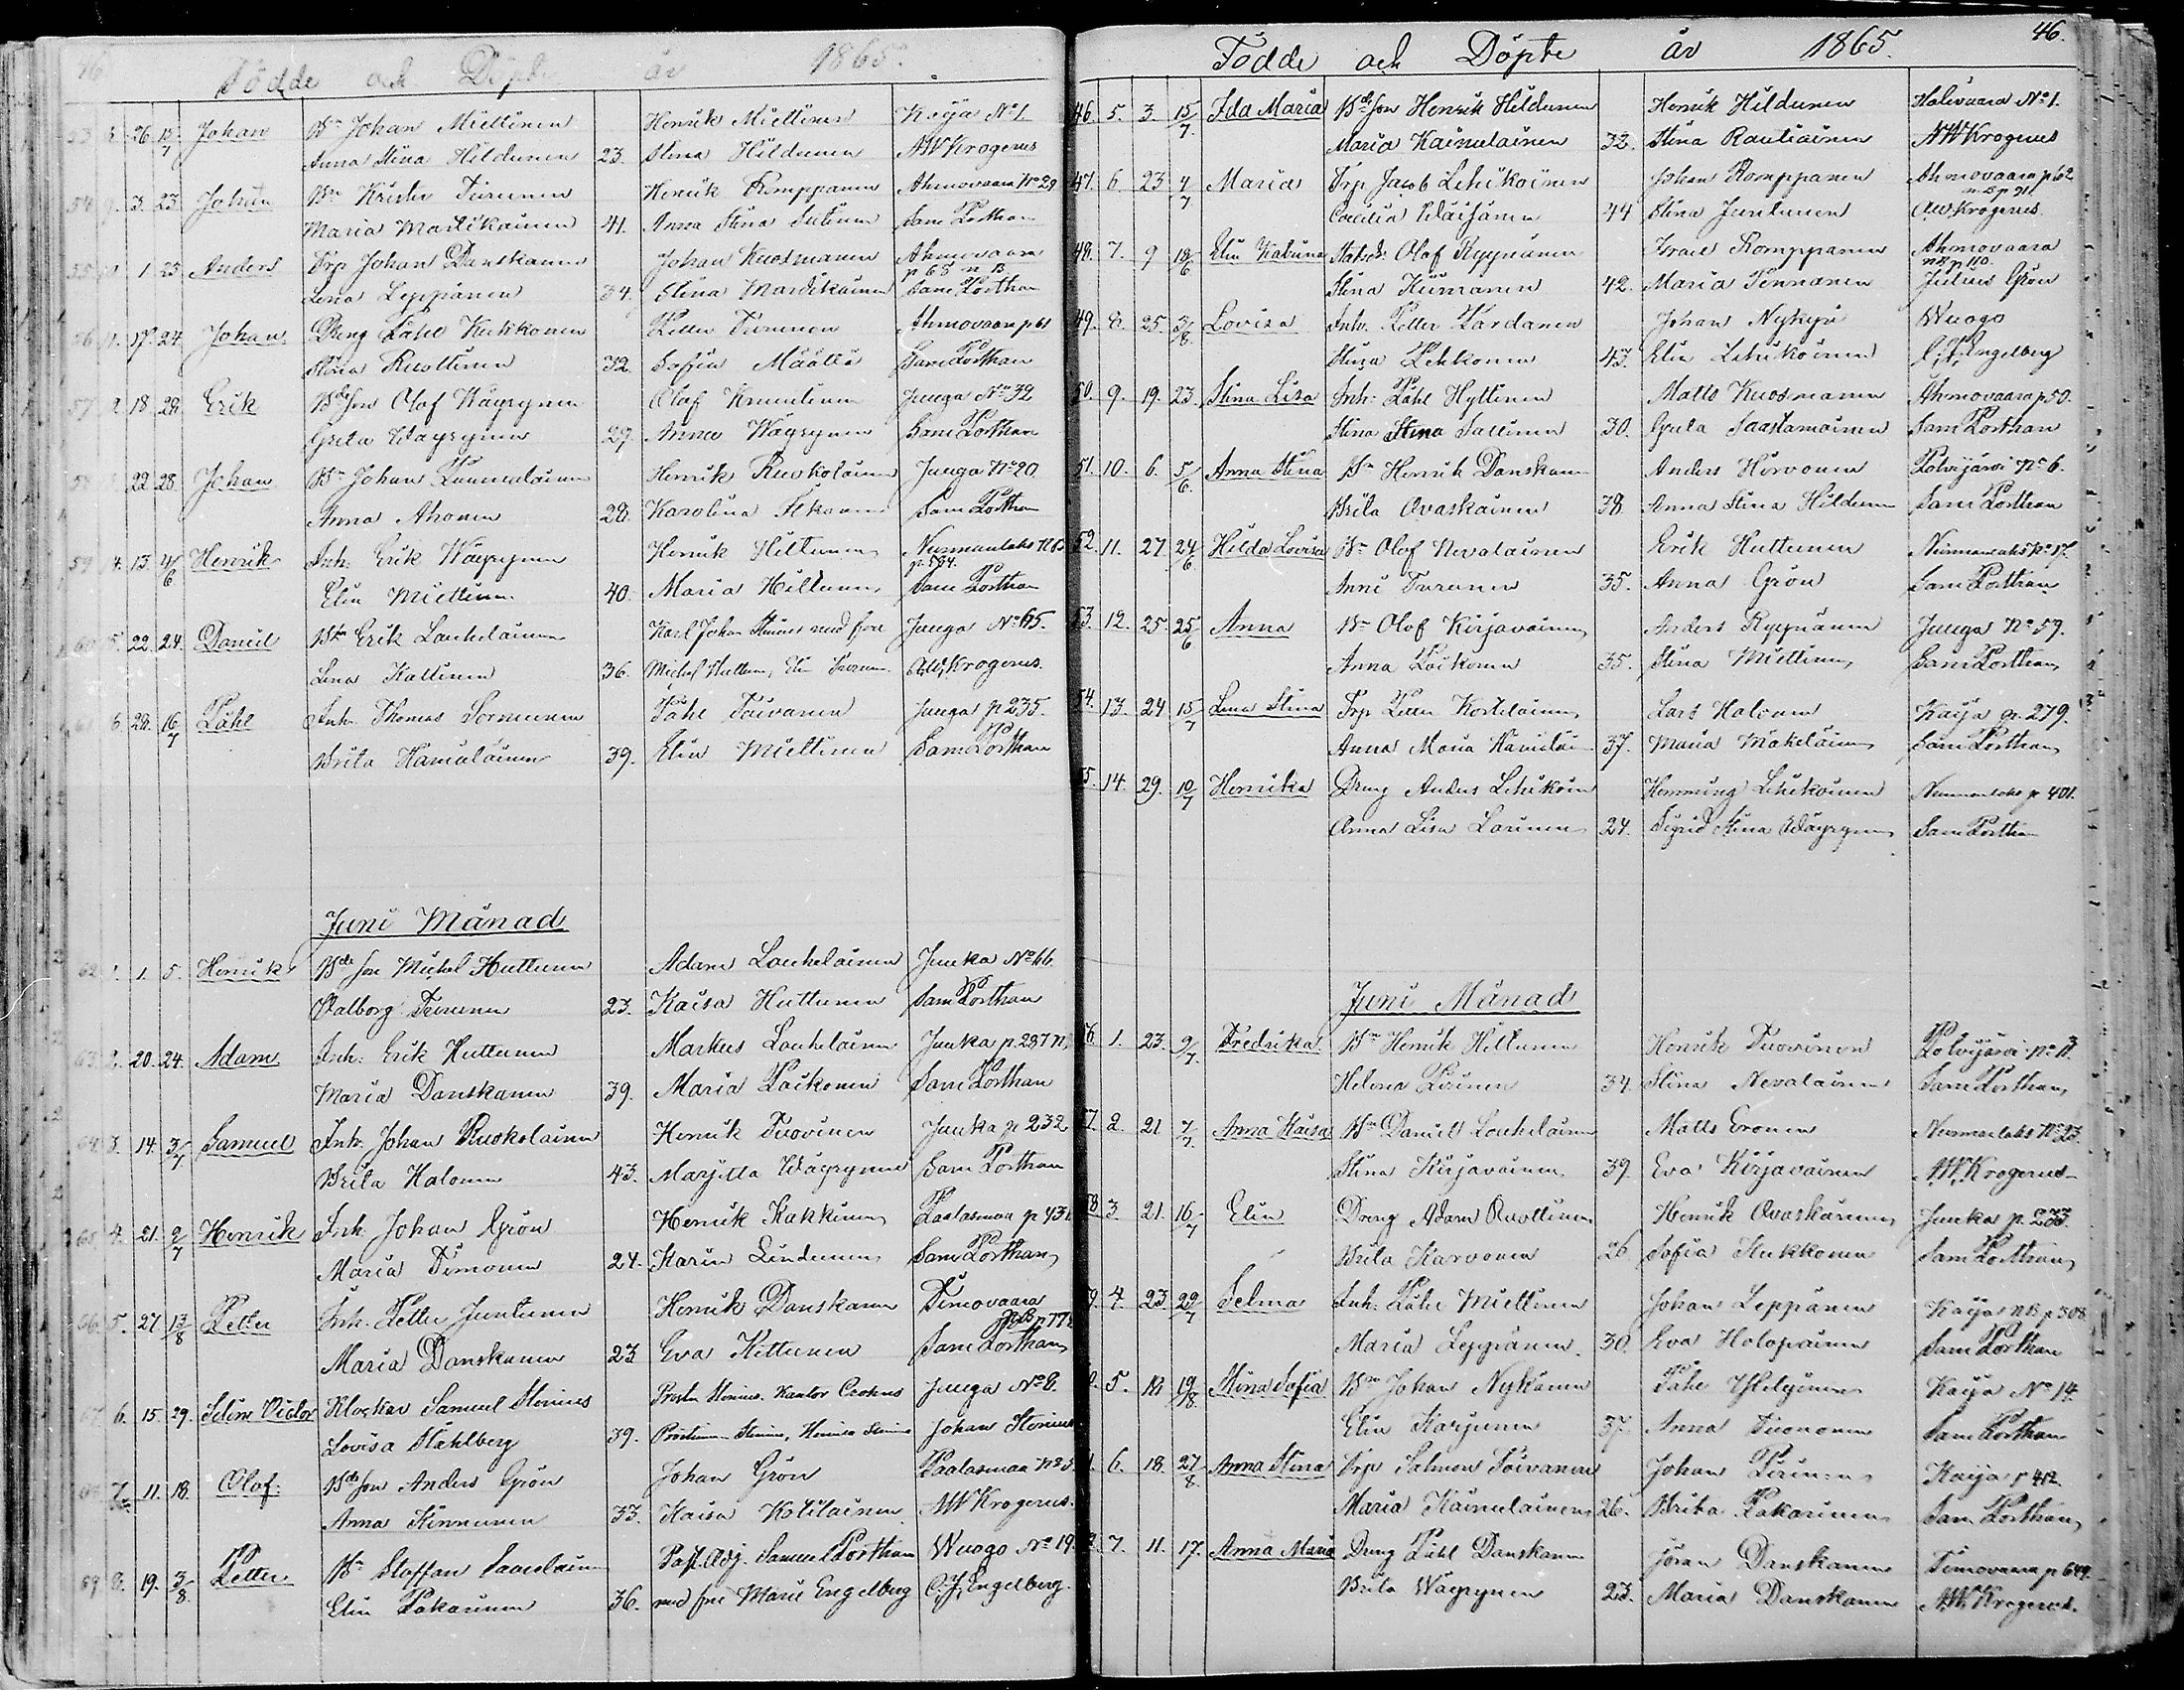 46
Födde och Döpte år 1865.
53 8. 26. 15/7 Johan Bn Johan Miettinen Henrik Miettinen Kaija No 1
Anna Stina Hildunen 23. Stina Hildunen AW Krogerus
54 9. 3. 23. Johan Bn Krister Turunen Henrik Romppanen Ahmovaara No 29
Maria Martikainen 41. Anna Stina Sam Porthan
55 10. 1. 25 Anders Trp Johan Danskanen Johan Kuosmanen Ahmovaara
p 63 n B
Lena Leppänen 34. Stina Martikainen Sam Porthan
56 11. 17. 24. Johan Dreng Påhl Kukkonen Petter Turunen Ahmovaara p 61
Stina Ruottinen 32. Sofia Määttä Sam Porthan
57 2. 18. 28. Erik Bdeson Olof Wäyrynen Olof Juuga No 32
Greta Wäyrynen 29. Anna Wäyrynen Sam Porthan
58 22. 28. Johan Bn Johan Kainulainen Henrik Ruokolainen Juuga No 20
Anna Ahonen 28. Karolina Sam Porthan
59 14. 13. 4/6 Henrik Inh. Erik Wäyrynen Henrik Hiltunen Nurmanlaks
Elin Miettinen 40. Maria Hiltunen Sam Porthan
60 5. 22. 24. Daniel Bn Erik Louhelainen Karl Johan Stenius med fru Juuga No 65.
Lena Kallinen 36. Michel Huttunen, Elin AW Krogerus.
61 6. 28. 16/7 Påhl Inh. Thomas Sormunen Påhl Toivanen Juuga p 235.
Brita Hämäläinen 39. Elin Miettinen Sam Porthan
Juni Månad
62 1. 1. 5. Henrik Bde son Michel Huttunen Adam Louhelainen Juuka No 66.
Valborg Turunen 23. Kaisa Huttunen Sam Porthan
63. 2. 20. 24. Adam Inh. Erik Huttunen Markus Louhelainen Juuka p. 287
Maria Danskanen 39. Maria Paikonen Sam Porthan
64 3. 14. 3/7 Samuel Inh. Johan Ruokolainen Henrik Tuovinen Juuka p 232
Brita Halonen 43. Marjetta Wäyrynen Sam Porthan
65 4. 21. 2/7 Henrik Inh. Johan Grön Henrik Kakkinen Paalasmaa p 431
Maria Timonen 24. Karin Lindunen Sam Porthan
66. 5. 27. 13/8 Petter Inh. Petter Juntunen Henrik Danskanen Timovaara
Maria Danskanen 23 Eva Kettunen Sam Porthan
67 6. 15. 29. Selim Victor Klockar Samuel Stenius Prosten Stenius. Kantor Juuga No 8.
Lovisa Ståhlberg 39. Prostinnan Stenius, Johan Stenius
7. 11. 18. Olof. Bdeson Anders Grön Johan Grön Paalasmaa No 3.
Anna Kinnunen 33. Kaisa Kotilainen AW Krogerus.
69 8. 19. 3/8. Petter Bn Staffan Past. Adj. Samuel Porthan Wuogo No 19.
Elin Pakarinen 36. med fru Marie Engelberg C. J. Engelberg.
46.
Födde och Döpte år 1865.
46. 5. 3. 15/7. Ida Maria Bdeson Henrik Hildunen Henrik Hildunen Halivaara No 1.
Maria Kainulainen 32. Stina Rautiainen AW Krogerus
47. 6. 23 4/7 Maria Trp Jacob Lehikoinen Johan Romppanen Ahmovaara p 62
Cecilia Wäisänen 44 Stina Juntunen AW Krogerus.
48. 7. 9 18/6 Elin Katrina Olof Ryynänen Israel Romppanen Ahmovaara
nB p 110.
Stina Kiimanen 42. Maria Tennanen Julius Grön
49. 8. 25. 3/8. Lovisa Inh. Petter Pardanen Johan Nykyri Wuogo
Stina Pehkonen 43. Elin Lehikoinen C. J. Engelberg
50. 9. 19. 23. Stina Lisa Inh: Påhl Hyttinen Matts Kuosmanen Ahmovaara p 50.
Stina Stina Sallinen 30. Greta Saastamoinen Sam Porthan
51. 10. 6. 5/6. Anna Stina Bn Henrik Danskanen Anders Hirvonen Polvijärvi No 6.
Brita Ovaskainen 38. Anna Stina Hildunen Sam Porthan
52. 11. 27 24/6 Hilda Lovisa Bn Olof Nevalainen Erik Huttunen Nurmanlaks No 17.
Anni Turunen 35. Anna Grön Sam Porthan
53. 12. 25. 25/6 Anna Bn Olof Kirjavainen Anders Ryynänen Juuga No 59.
Anna Paikonen 35. Stina Miettinen Sam Porthan
54. 13. 24 15/7 Lena Stina Trp Petter Kortelainen Lars Halonen Kaija p. 279.
Anna Maria 37. Maria Mäkeläinen Sam Porthan
55. 14. 29. 10/7 Henrika Dreng Anders Lehikoinen Hemming Lehikoinen Nurmanlaks p 401.
Anna Lisa Larinen 24. Sigrid Stina Wäyrynen Sam Porthan
Juni Månad
56. 1. 23. 9/7. Fredrika Bn Henrik Hiltunen Henrik Tuovinen Polvijärvi No
Helena Piirinen 34. Stina Nevalainen Sam Porthan
57. 2. 21 7/7. Anna Kaisa Bn Daniel Louhelainen Matts Eronen Nurmanlaks No 23.
Stina Kirjavainen 39. Eva Kirjavainen AW Krogerus
58. 3 21. 16/7 Elin Dreng Adam Ruottinen Henrik Ovaskainen Juuka p. 233
Brita Karvonen 26 Sofia Kukkonen Sam Porthan
59. 4. 23. 22/7 Selma Inh: Påhl Miettinen Johan Leppänen Kaija nB p 308
Maria Leppänen 30. Eva Holopainen Sam Porthan
5. 18 19/8. Stina Sofia Bn Johan Nykänen Påhl Kaija No 14
Elin Karjunen 37. Anna Sam Porthan
6. 18. 27/8. Anna Stina Trp Salmon Toivanen Johan Piirinen Kaija p 412.
Maria Kainulainen 26. Brita Pakarinen Sam Porthan
7. 11. 17. Anna Maria Dreng Påhl Danskanen Jöran Danskanen Timovaara p 649.
Brita Wäyrynen 23. Maria Danskanen AW Krogerus.